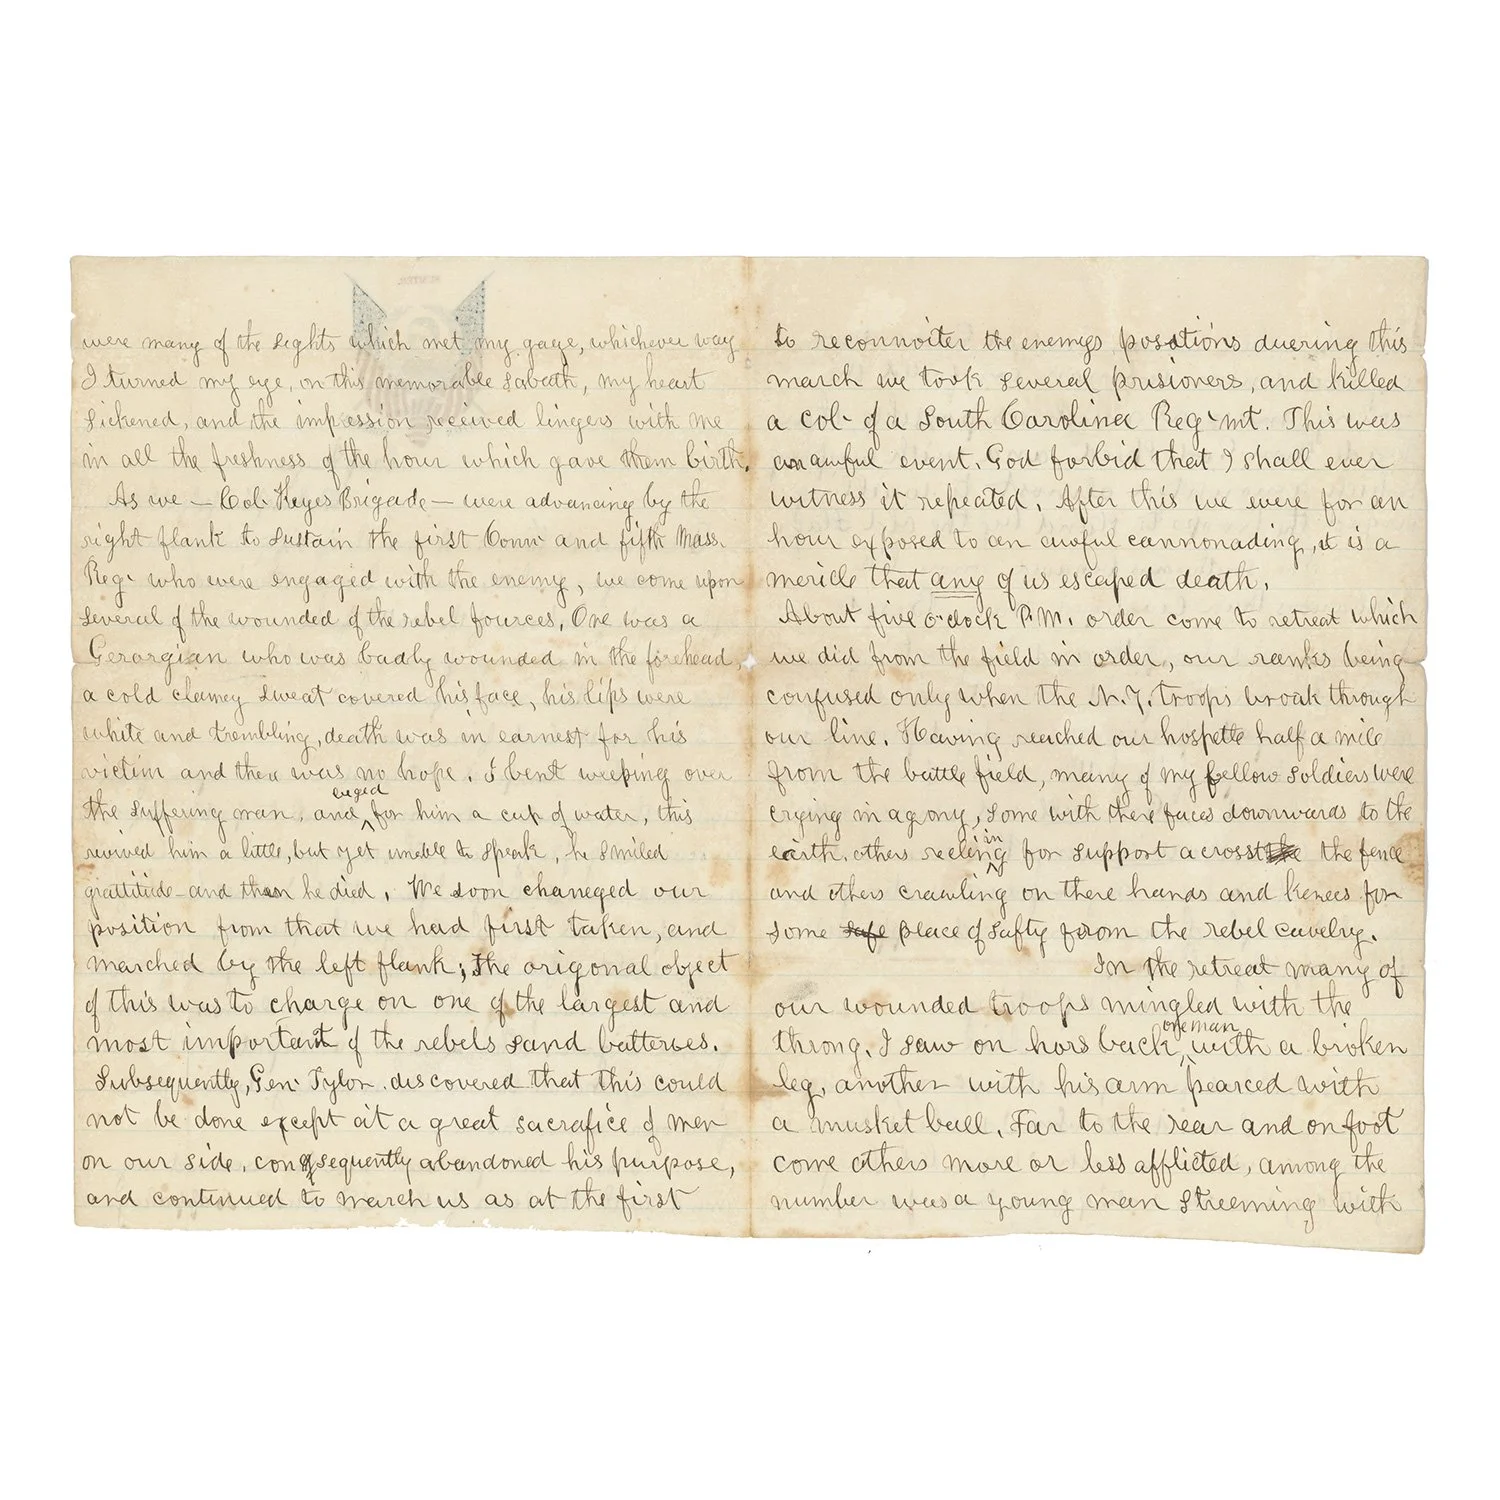 were many of the sights which met my gage, whichever way
I turned my eye, on this memorable Sabath, my heart
Sickened, and the impression received lingers with me
in all the freshness of the hour which gave them birth.
As we — Col. Keyes Brigade — were advancing by the
right flank to sustain the first Conn. and fifth Mass.
Reg. who were engaged with the enemy, we come upon
several of the wounded of the rebel fources. One was a
Gerorgian who was badly wounded in the forehead,
a cold clamey sweat covered his face, his lips were
white and trembling, death was in earnest for his
victim and there was no hope. I bent weeping over
the suffering man, and beged for him a cup of water, this
revived him a little, but yet unable to speak, he smiled
grattitude — and then he died. We soon chaneged our
position from that we had first taken, and
marched by the left flank; The origonal object
of this was to charge on one of the largest and
most important of the rebels sand batteries.
Subsequently, Gen. Tylor discovered that this could
not be done except at a great sacrafice of men
on our side, consequently abandoned his purpose,
and continued to march us as at the first
to reconnoiter the enemys positions duering this
march we took several prisioners, and killed
a col. of a South Carolina Reg'mt. This was
an awful event. God forbid that I shall ever
witness it repeated. After this we were for an
hour exposed to an awful cannonading, it is a
mericle that any of us escaped death.
About five o'clock P.M. order come to retreat which
we did from the field in order, our ranks being
confused only when the N.Y. troops broak through
our line. Having reached our hospetle half a mile
from the battle field, many of my fellow soldiers were
crying in agony, some with there faces downwards to the
earth, others reeleing in for support across the the fence
and others crawling on there hands and kenees for
some safe place of safty from the rebel cavelry.
In the retreat many of
our wounded troops mingled with the
throng. I saw on hors back, one man with a broken
leg, another with his arm pearced with
a musket ball. Far to the rear and on foot
come others more or less afflicted, among the
number was a young man streeming with